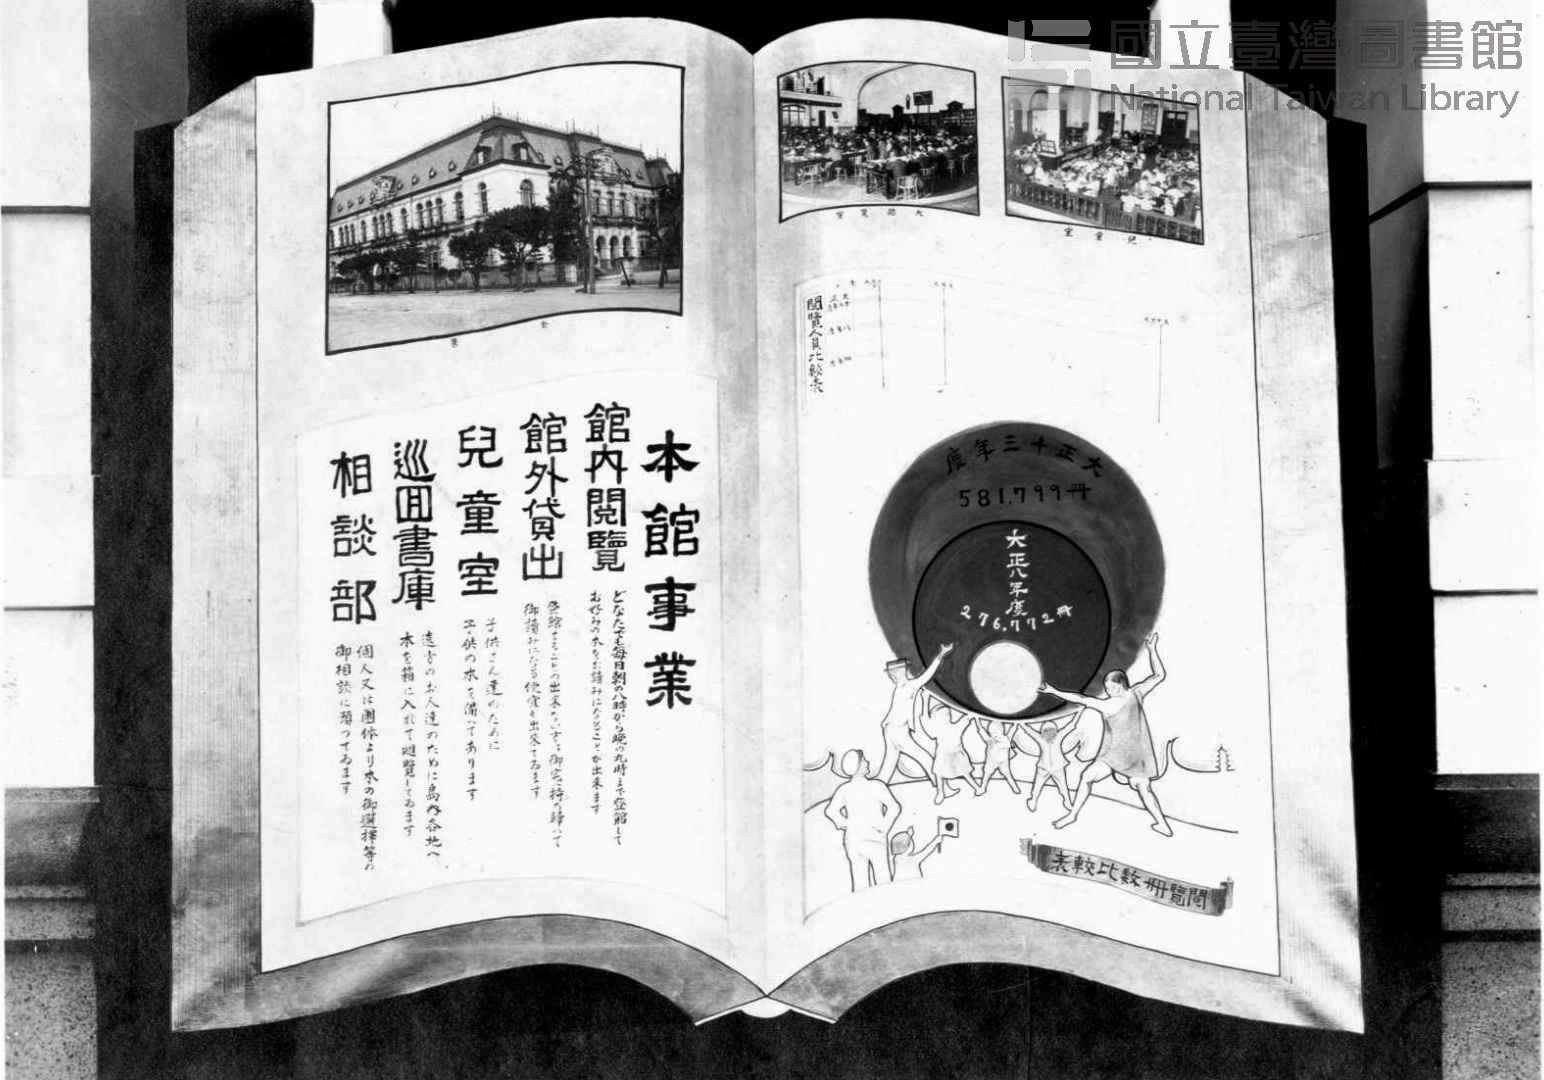 國立臺灣圖書館
National Taiwan Library
全景
大閱覽室
兒童室
本館事業
館內閱覽
どなたでも每日朝の八時から晚の九時まで登館して
お好みの本をお讀みになることが出來ます
館外貸出
登館することの出來ない方は御宅へ持ち歸つて
御讀みになる便宜も出來てゐます
兒童室
子供さん達のために
子供の本を備へてあります
巡囘書庫
遠方のお人達のために島內各地へ
本を箱に入れて廻覽してゐます
相談部
個人又は團体より本の御選擇等の
御相談に預つてゐます
閱覽人員比較表
大正十三年度
581,799冊
大正八年度
276,772冊
閱覽冊數比較表